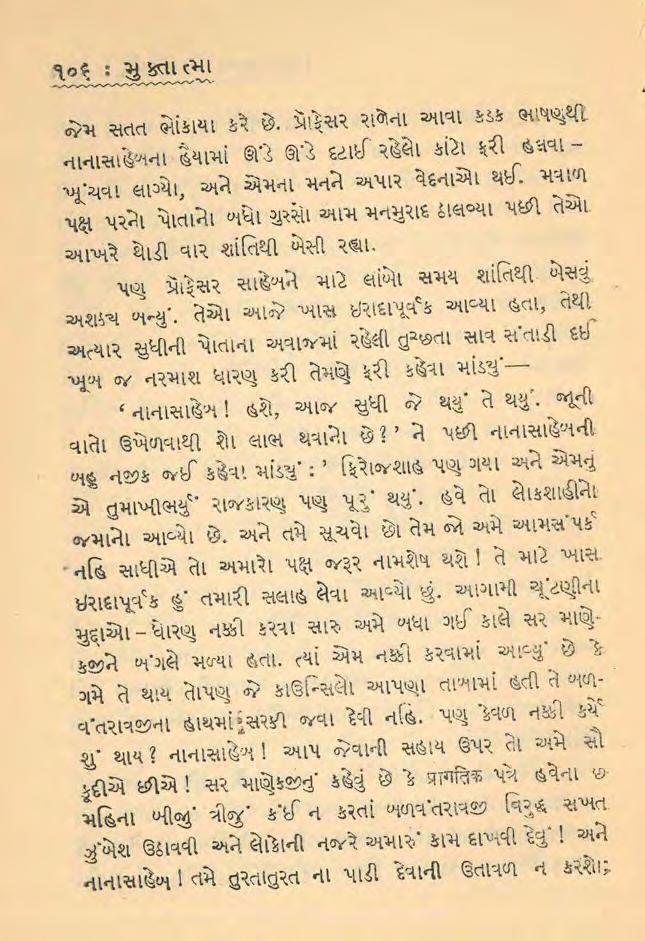 ૧૦૬ : મુક્તાત્મા
જેમ સતત ભોંકાયા કરે છે. પ્રોફેસર રાળેના આવા કડક ભાષણથી
નાનાસાહેબના હૈયામાં ઊંડે ઊંડે દટાઈ રહેલો કાંટો ફરી હલવા –
ખૂંચવા લાગ્યો, અને એમના મનને અપાર વેદનાઓ થઈ. મવાળ
પક્ષ પરનો પોતાનો બધો ગુસ્સો આમ મનમુરાદ ઠાલવ્યા પછી તેઓ
આખરે થોડી વાર શાંતિથી બેસી રહ્યા.
પણ પ્રોફેસર સાહેબને માટે લાંબો સમય શાંતિથી બેસવું
અશક્ય બન્યું. તેઓ આજે ખાસ ઇરાદાપૂર્વક આવ્યા હતા, તેથી
અત્યાર સુધીની પોતાના અવાજમાં રહેલી તુચ્છતા સાવ સંતાડી દઈ
ખૂબ જ નરમાશ ધારણ કરી તેમણે ફરી કહેવા માંડ્યું—
‘ નાનાસાહેબ ! હશે, આજ સુધી જે થયું તે થયું. જૂની
વાતો ઉખેળવાથી શો લાભ થવાનો છે ? ’ ને પછી નાનાસાહેબની
બહુ નજીક જઈ કહેવા માંડ્યું : ’ ફિરોજશાહ પણ ગયા અને એમનું
એ તુમાખીભર્યું રાજકારણ પણ પૂરું થયું. હવે તો લોકશાહીનો
જમાનો આવ્યો છે. અને તમે સૂચવો છો તેમ જો અમે આમસંપર્ક
નહિ સાધીએ તો અમારો પક્ષ જરૂર નામશેષ થશે ! તે માટે ખાસ
ઇરાદાપૂર્વક હું તમારી સલાહ લેવા આવ્યો છું. આગામી ચૂંટણીના
મુદ્દાઓ – ધોરણ નક્કી કરવા સારુ અમે બધા ગઈ કાલે સર માણે-
કજીને બંગલે મળ્યા હતા. ત્યાં એમ નક્કી કરવામાં આવ્યું છે કે
ગમે તે થાય તોપણ જે કાઉન્સિલો આપણા તાબામાં હતી તે બળ-
વંતરાવજીના હાથમાં સરકી જવા દેવી નહિ. પણ કેવળ નક્કી કર્યે
શું થાય ? નાનાસાહેબ ! આપ જેવાની સહાય ઉપર તો અમે સૌ
કૂદીએ છીએ ! સર માણેકજીનું કહેવું છે કે प्रागतिक પત્રે હવેના છ
મહિના બીજું ત્રીજું કંઈ ન કરતાં બળવંતરાવજી વિરુદ્ધ સખત
ઝુંબેશ ઉઠાવવી અને લોકોની નજરે અમારું કામ દાખવી દેવું ! અને
નાનાસાહેબ ! તમે તુરતાતુરત ના પાડી દેવાની ઉતાવળ ન કરશો;